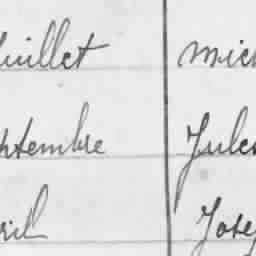 uillet Mich
ptembre Jules
ril Jose